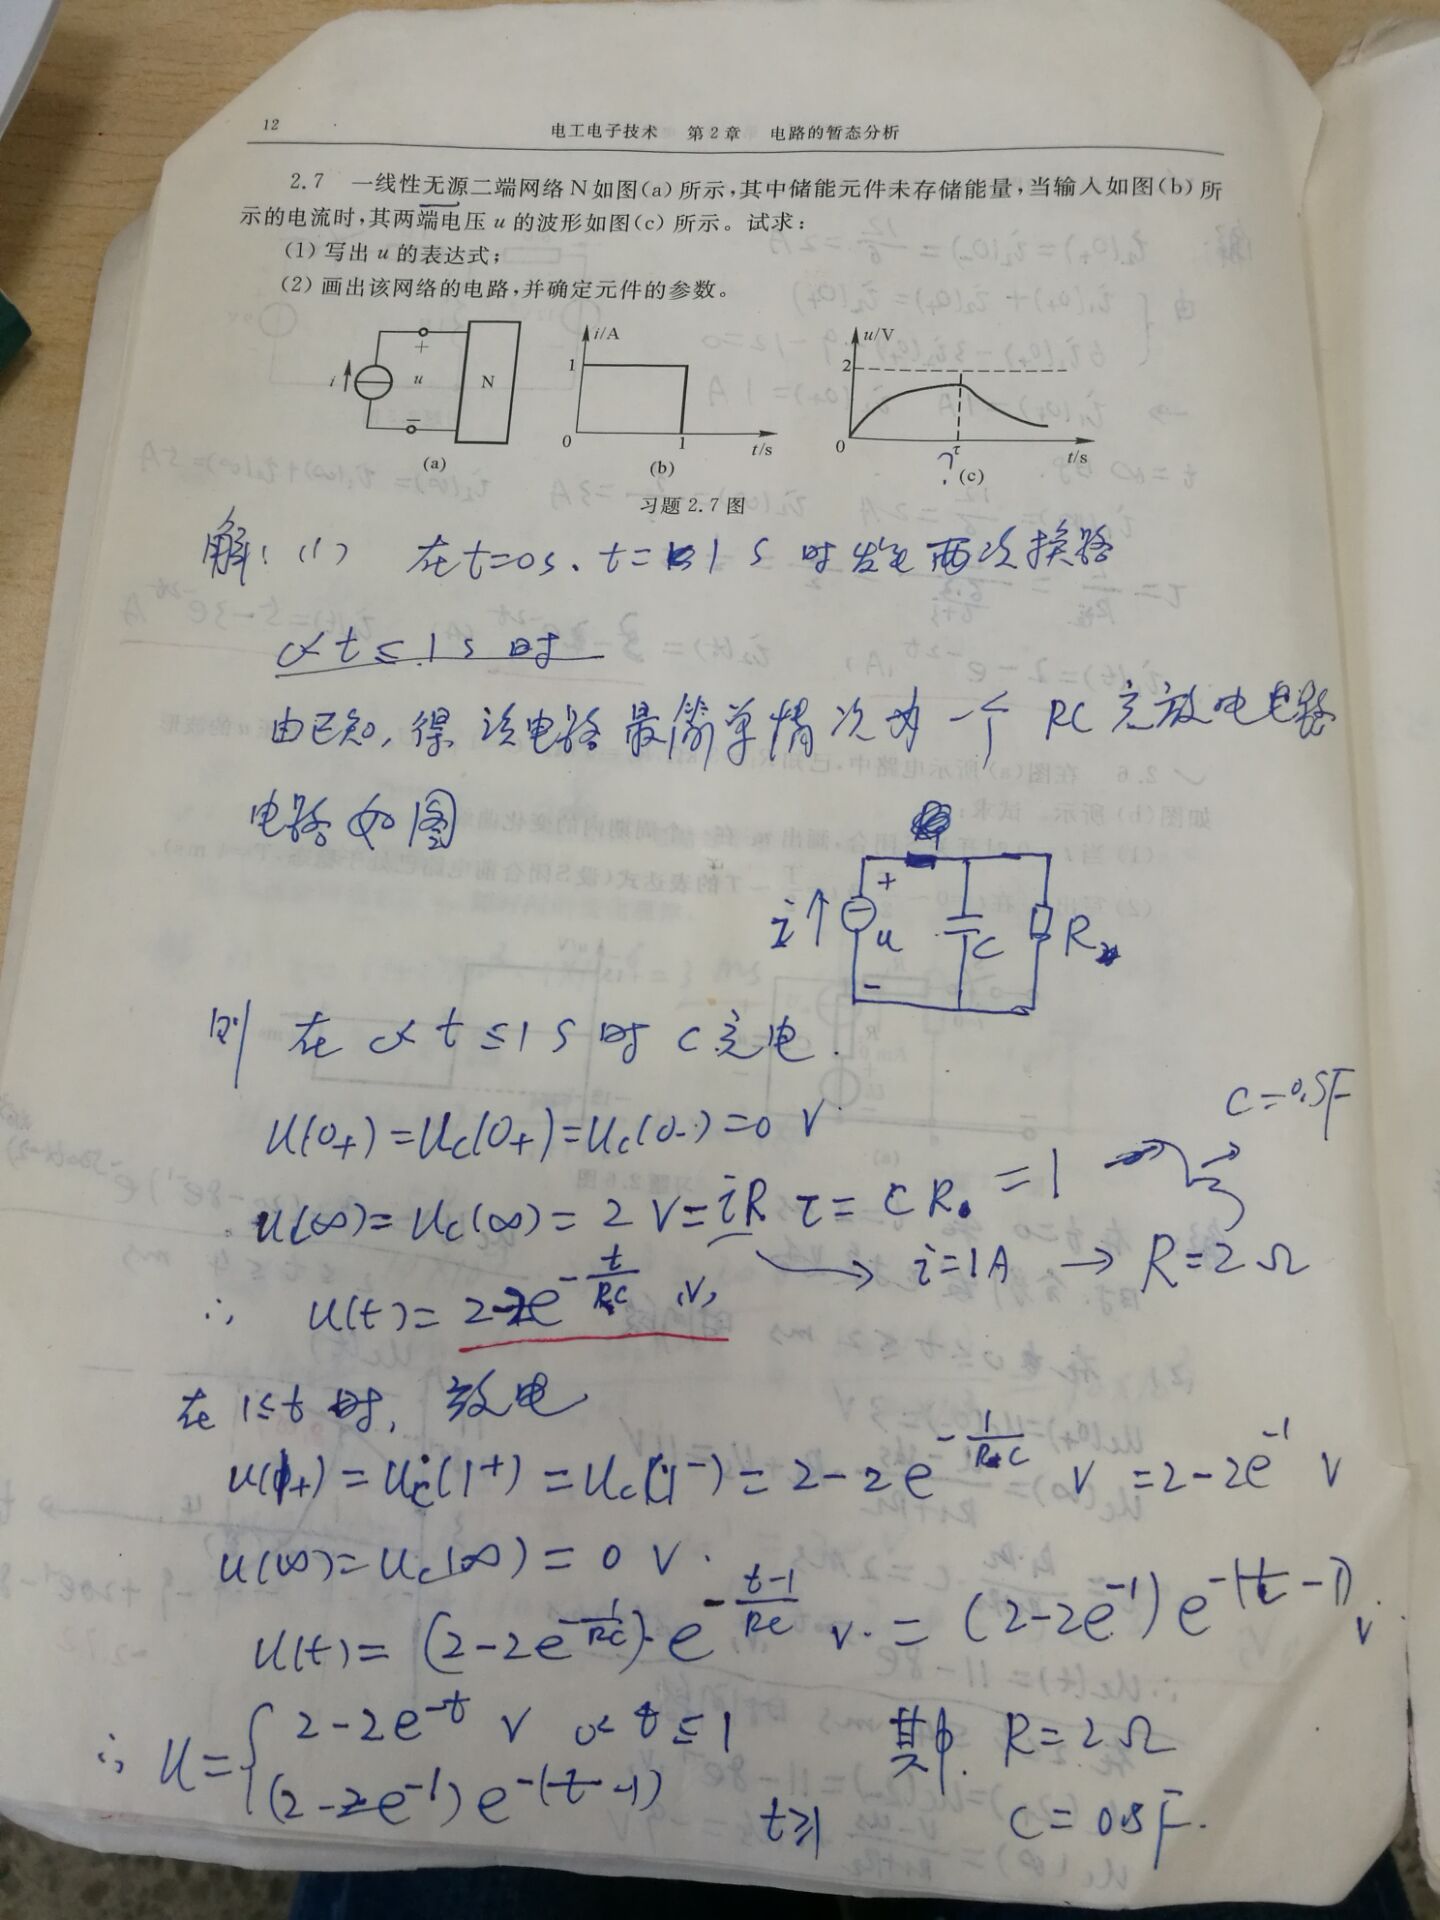 12
电工电子技术 第2章 电路的暂态分析
2.7 一线性无源二端网络N如图(a)所示,其中储能元件未存储能量,当输入如图(b)所
示的电流时,其两端电压u的波形如图(c)所示。试求:
(1)写出u的表达式;
(2)画出该网络的电路,并确定元件的参数。
i + u − N
(a)
i/A 1 0 1 t/s
(b)
u/V 2 0 τ t/s
? (c)
习题2.7图
解:(1) 在t=0s、t=1s时发生两次换路
0<t≤1s时
由已知,得该电路最简单情况为一个RC充放电电路
电路如图
i + u − C R
则在0<t≤1s时C充电.
u(0+)=uc(0+)=uc(0-)=0 V.
u(∞)=uc(∞)=2V=iR τ=CR=1 → C=0.5F
→ i=1A → R=2Ω
∴ u(t)=2-2e^{-t/RC} (V)
在1≤t时,放电
u(1+)=uc(1+)=uc(1-)=2-2e^{-1/RC} V =2-2e^{-1} V
u(∞)=uc(∞)=0 V.
u(t)=(2-2e^{-1/RC})·e^{-(t-1)/RC} V.=(2-2e^{-1})e^{-(t-1)} V.
∴ u={2-2e^{-t} V 0<t≤1 其中 R=2Ω
(2-2e^{-1})e^{-(t-1)} t≥1 C=0.5F.